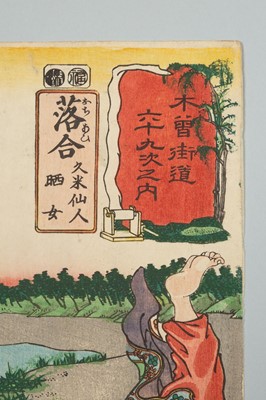 木曽街道
六十九次之内
落合
おちあひ
久米仙人
晒女